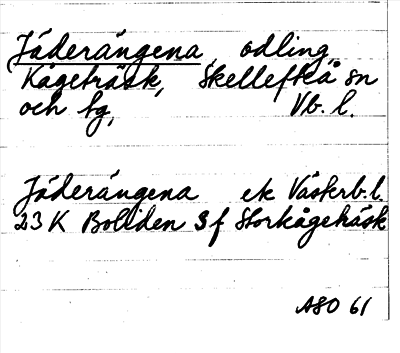 Jäderängena, odling,
Kågeträsk, Skellefteå sn
och tg, Vb. l.
Jäderängena ek Västerb. l.
23 K Boliden 3 f Storkågeträsk
ASO 61